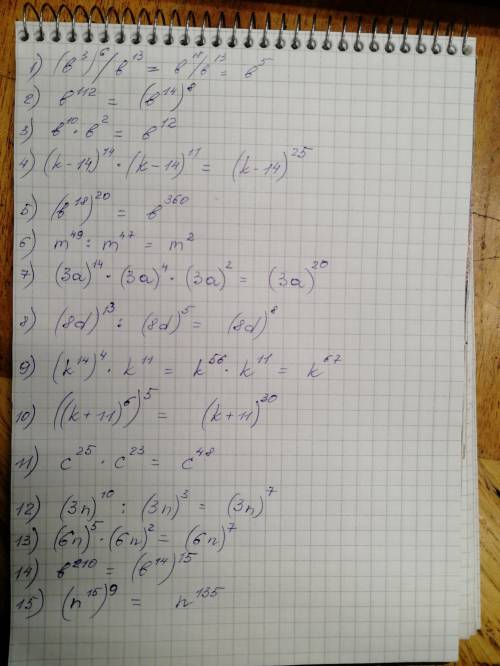 1) (в³)⁶/в¹³ = в¹⁸/в¹³ = в⁵
2) в¹¹² = (в¹⁴)⁸
3) в¹⁰ · в² = в¹²
4) (k-14)¹⁴ · (k-14)¹¹ = (k-14)²⁵
5) (в¹⁸)²⁰ = в³⁶⁰
6) m⁴⁹ : m⁴⁷ = m²
7) (3a)¹⁴ · (3a)⁴ · (3a)² = (3a)²⁰
8) (8d)¹³ : (8d)⁵ = (8d)⁸
9) (k¹⁴)⁴ · k¹¹ = k⁵⁶ · k¹¹ = k⁶⁷
10) ((k+11)⁶)⁵ = (k+11)³⁰
11) c²⁵ · c²³ = c⁴⁸
12) (3n)¹⁰ : (3n)³ = (3n)⁷
13) (6n)⁵ · (6n)² = (6n)⁷
14) в²¹⁰ = (в¹⁴)¹⁵
15) (n¹⁵)⁹ = n¹³⁵